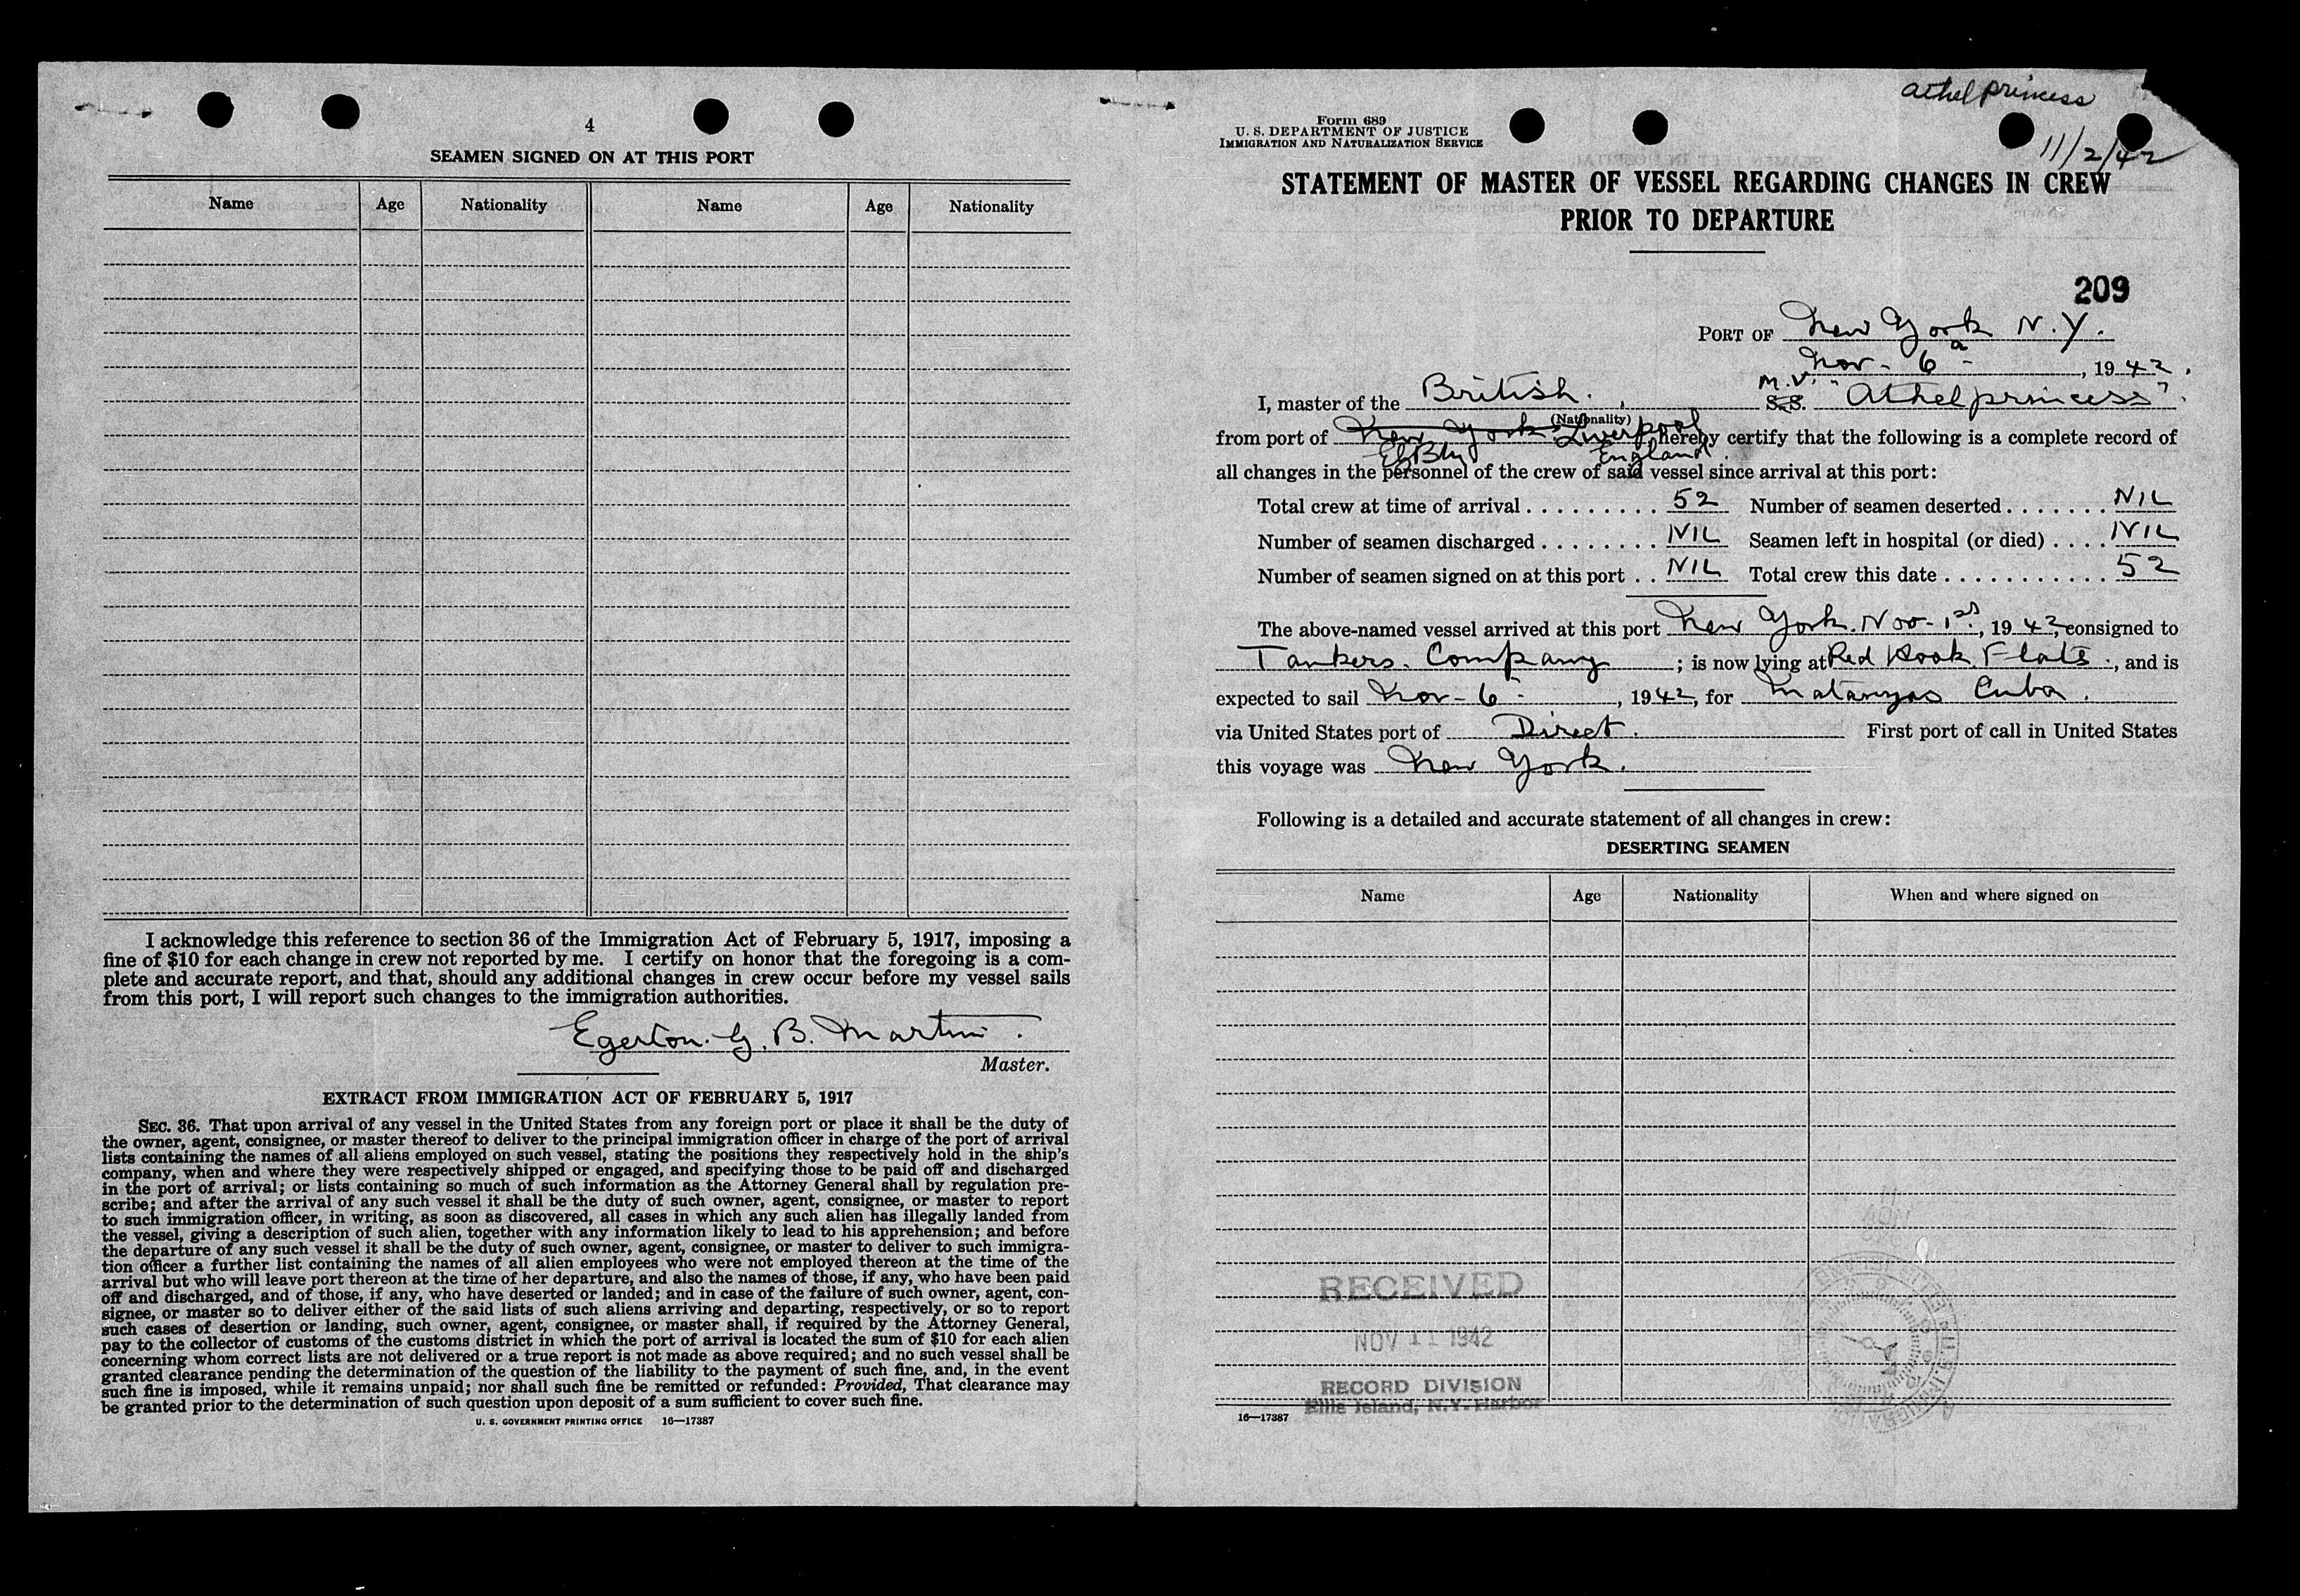 4
SEAMEN SIGNED ON AT THIS PORT
Name Age Nationality Name Age Nationality
I acknowledge this reference to section 36 of the Immigration Act of February 5, 1917, imposing a
fine of $10 for each change in crew not reported by me. I certify on honor that the foregoing is a com-
plete and accurate report, and that, should any additional changes in crew occur before my vessel sails
from this port, I will report such changes to the immigration authorities.
Egerton. G. B. Martin.
Master.
EXTRACT FROM IMMIGRATION ACT OF FEBRUARY 5, 1917
SEC. 36. That upon arrival of any vessel in the United States from any foreign port or place it shall be the duty of
the owner, agent, consignee, or master thereof to deliver to the principal immigration officer in charge of the port of arrival
lists containing the names of all aliens employed on such vessel, stating the positions they respectively hold in the ship's
company, when and where they were respectively shipped or engaged, and specifying those to be paid off and discharged
in the port of arrival; or lists containing so much of such information as the Attorney General shall by regulation pre-
scribe; and after the arrival of any such vessel it shall be the duty of such owner, agent, consignee, or master to report
to such immigration officer, in writing, as soon as discovered, all cases in which any such alien has illegally landed from
the vessel, giving a description of such alien, together with any information likely to lead to his apprehension; and before
the departure of any such vessel it shall be the duty of such owner, agent, consignee, or master to deliver to such immigra-
tion officer a further list containing the names of all alien employees who were not employed thereon at the time of the
arrival but who will leave port thereon at the time of her departure, and also the names of those, if any, who have been paid
off and discharged, and of those, if any, who have deserted or landed; and in case of the failure of such owner, agent, con-
signee, or master so to deliver either of the said lists of such aliens arriving and departing, respectively, or so to report
such cases of desertion or landing, such owner, agent, consignee, or master shall, if required by the Attorney General,
pay to the collector of customs of the customs district in which the port of arrival is located the sum of $10 for each alien
concerning whom correct lists are not delivered or a true report is not made as above required; and no such vessel shall be
granted clearance pending the determination of the question of the liability to the payment of such fine, and, in the event
such fine is imposed, while it remains unpaid; nor shall such fine be remitted or refunded: Provided, That clearance may
be granted prior to the determination of such question upon deposit of a sum sufficient to cover such fine.
U. S. GOVERNMENT PRINTING OFFICE 16—17387
athelprincess
11/2/42
Form 689
U. S. DEPARTMENT OF JUSTICE
IMMIGRATION AND NATURALIZATION SERVICE
STATEMENT OF MASTER OF VESSEL REGARDING CHANGES IN CREW
PRIOR TO DEPARTURE
209
PORT OF New York N.Y.
Nov - 6, 1942.
I, master of the British. M.V. S.S. "Athelprincess".
(Nationality)
from port of New York Liverpool, hereby certify that the following is a complete record of
England.
all changes in the personnel of the crew of said vessel since arrival at this port:
Total crew at time of arrival 52 Number of seamen deserted NIL
Number of seamen discharged NIL Seamen left in hospital (or died) NIL
Number of seamen signed on at this port NIL Total crew this date 52
The above-named vessel arrived at this port New York. Nov - 1st, 1942, consigned to
Tankers. Company; is now lying at Red Hook. Flats., and is
expected to sail Nov - 6, 1942, for Matanzas Cuba.
via United States port of Direct. First port of call in United States
this voyage was New York.
Following is a detailed and accurate statement of all changes in crew:
DESERTING SEAMEN
Name Age Nationality When and where signed on
RECEIVED
NOV 11 1942
RECORD DIVISION
Ellis Island, N.Y. Harbor
16—17387